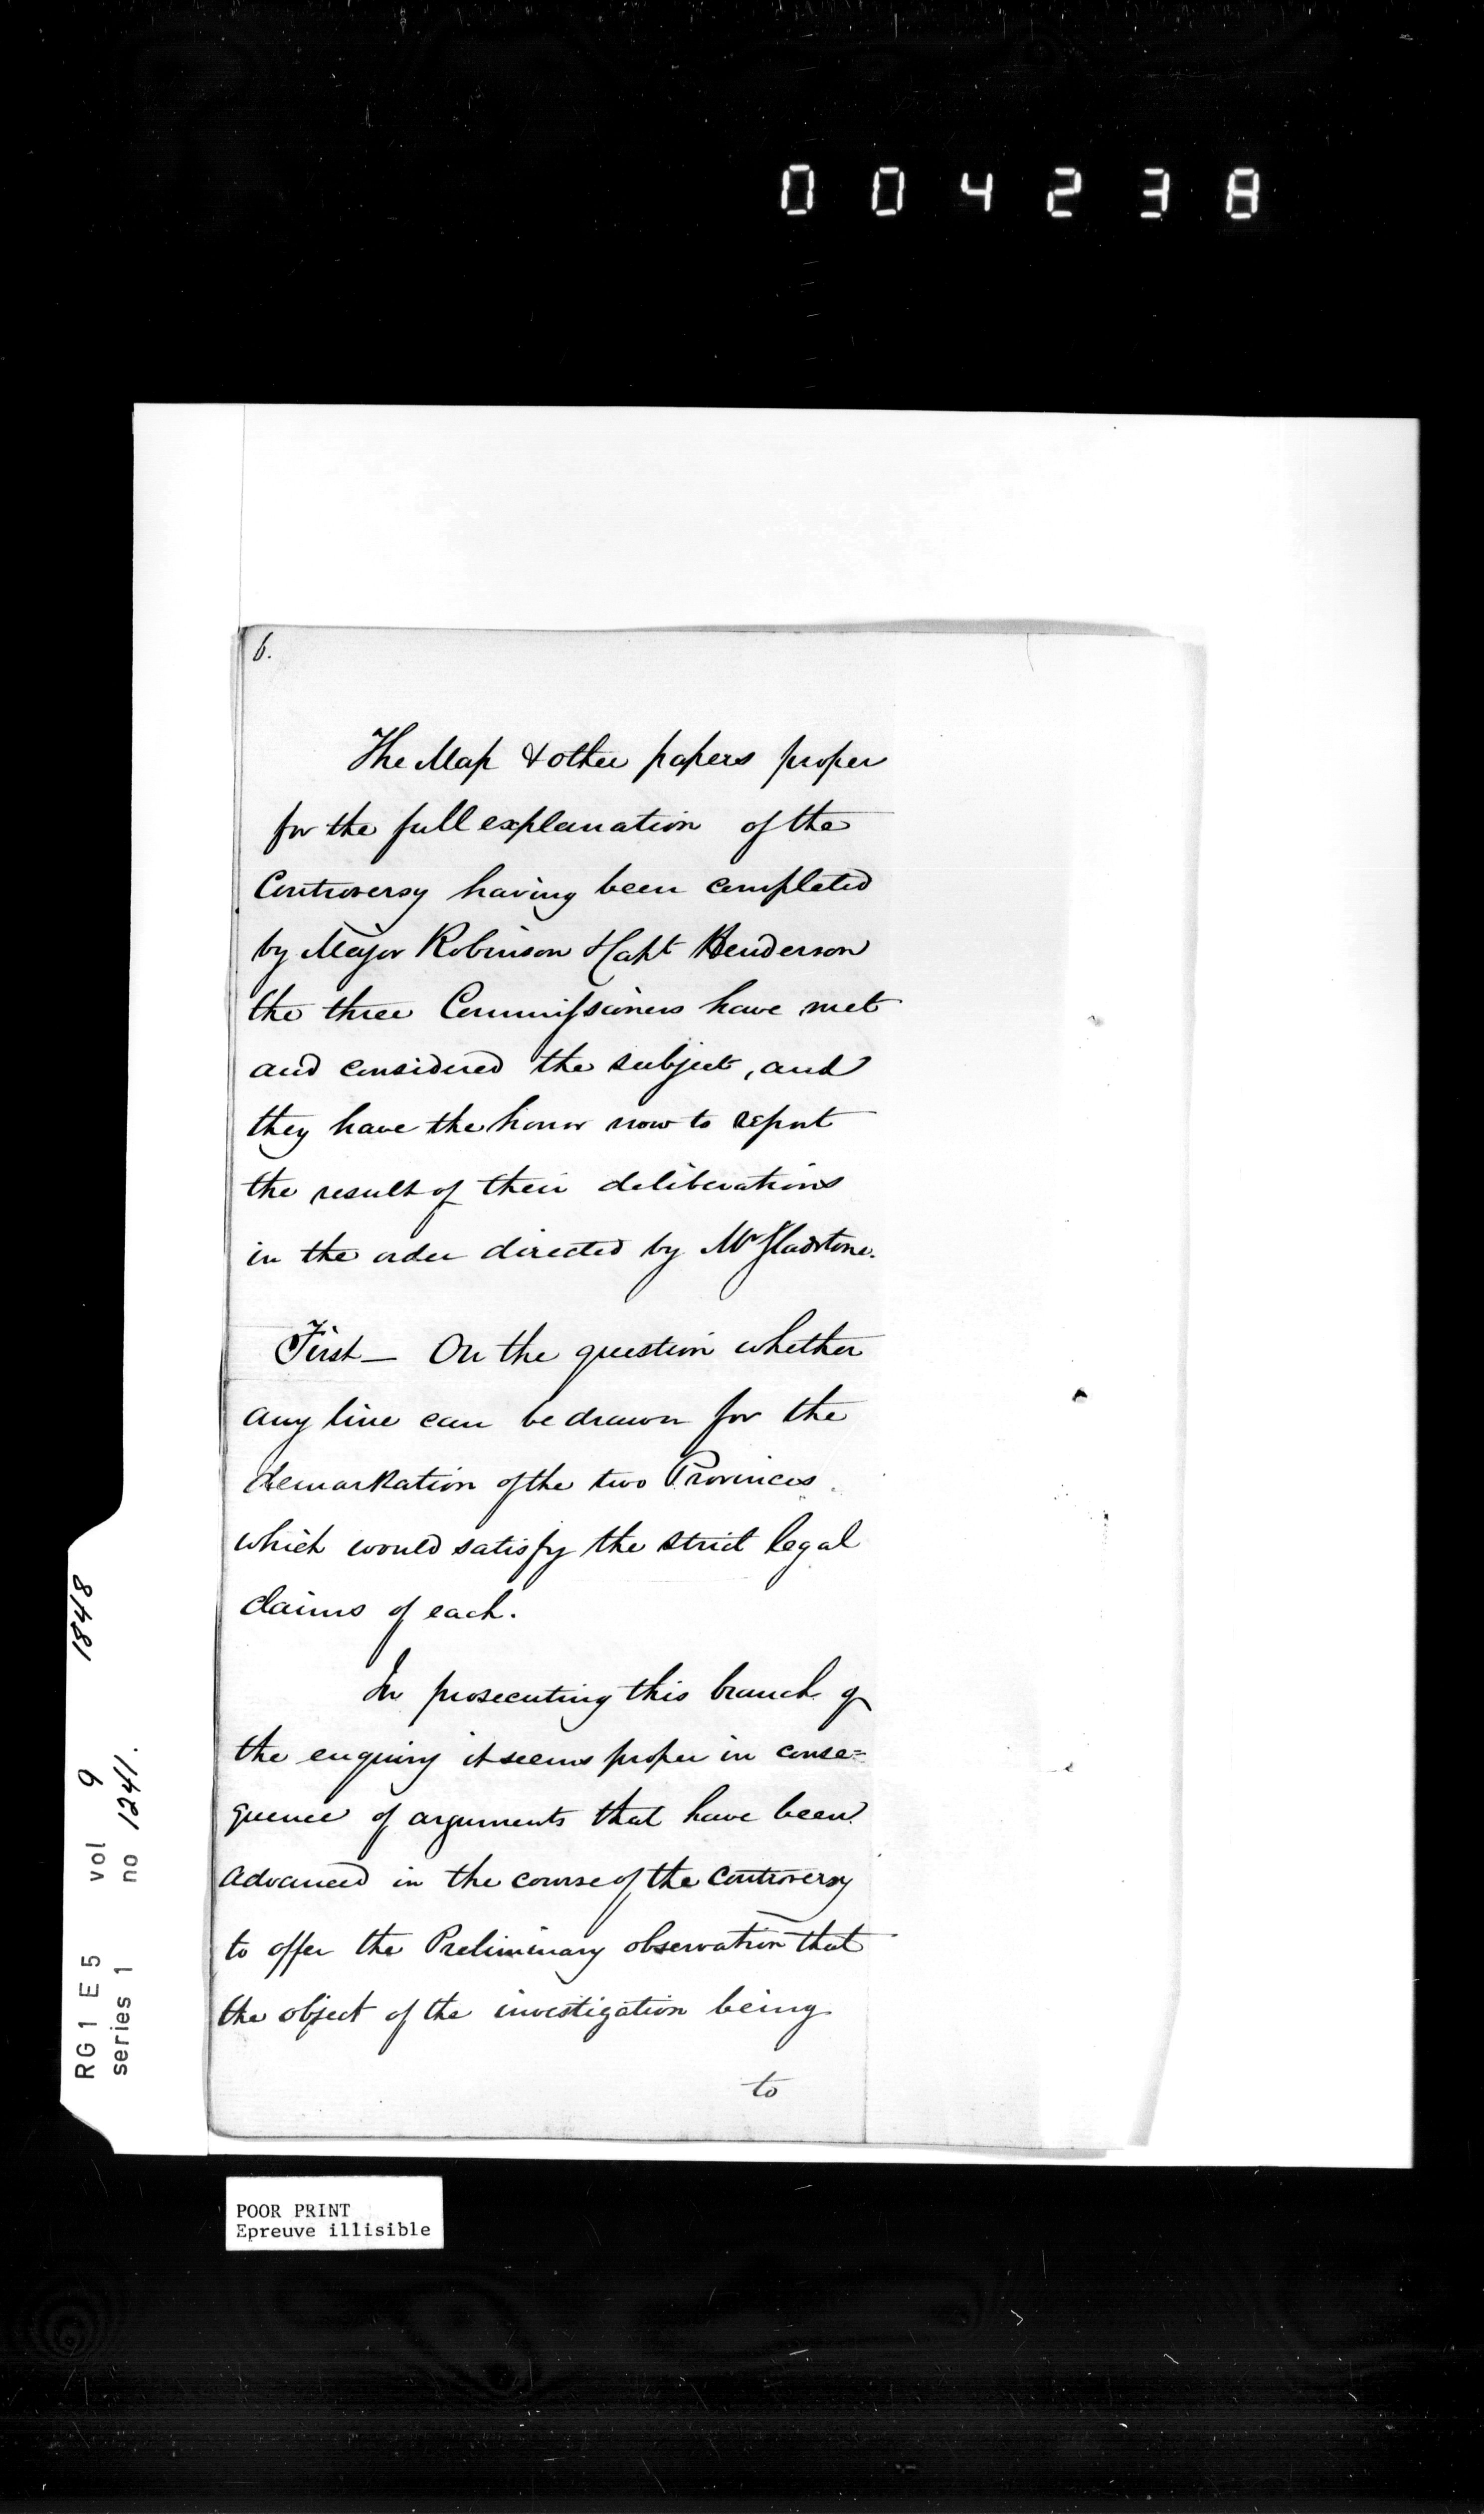 004238
6.
The Map & other papers proper
for the full explanation of the
Controversy having been completed
by Major Robinson & Capt Henderson
the three Commissioners have met
and considered the subject, and
they have the honor now to report
the result of their deliberations
in the order directed by Mr Gladstone.
First — On the question whether
any line can be drawn for the
demarkation of the two Provinces
which would satisfy the strict legal
claims of each.
In prosecuting this branch of
the enquiry it seems proper in conse=
quence of arguments that have been
advanced in the course of the controversy
to offer the Preliminary observation that
the object of the investigation being
to
RG 1 E 5 vol 9 1848
series 1 no 1241.
POOR PRINT
Epreuve illisible